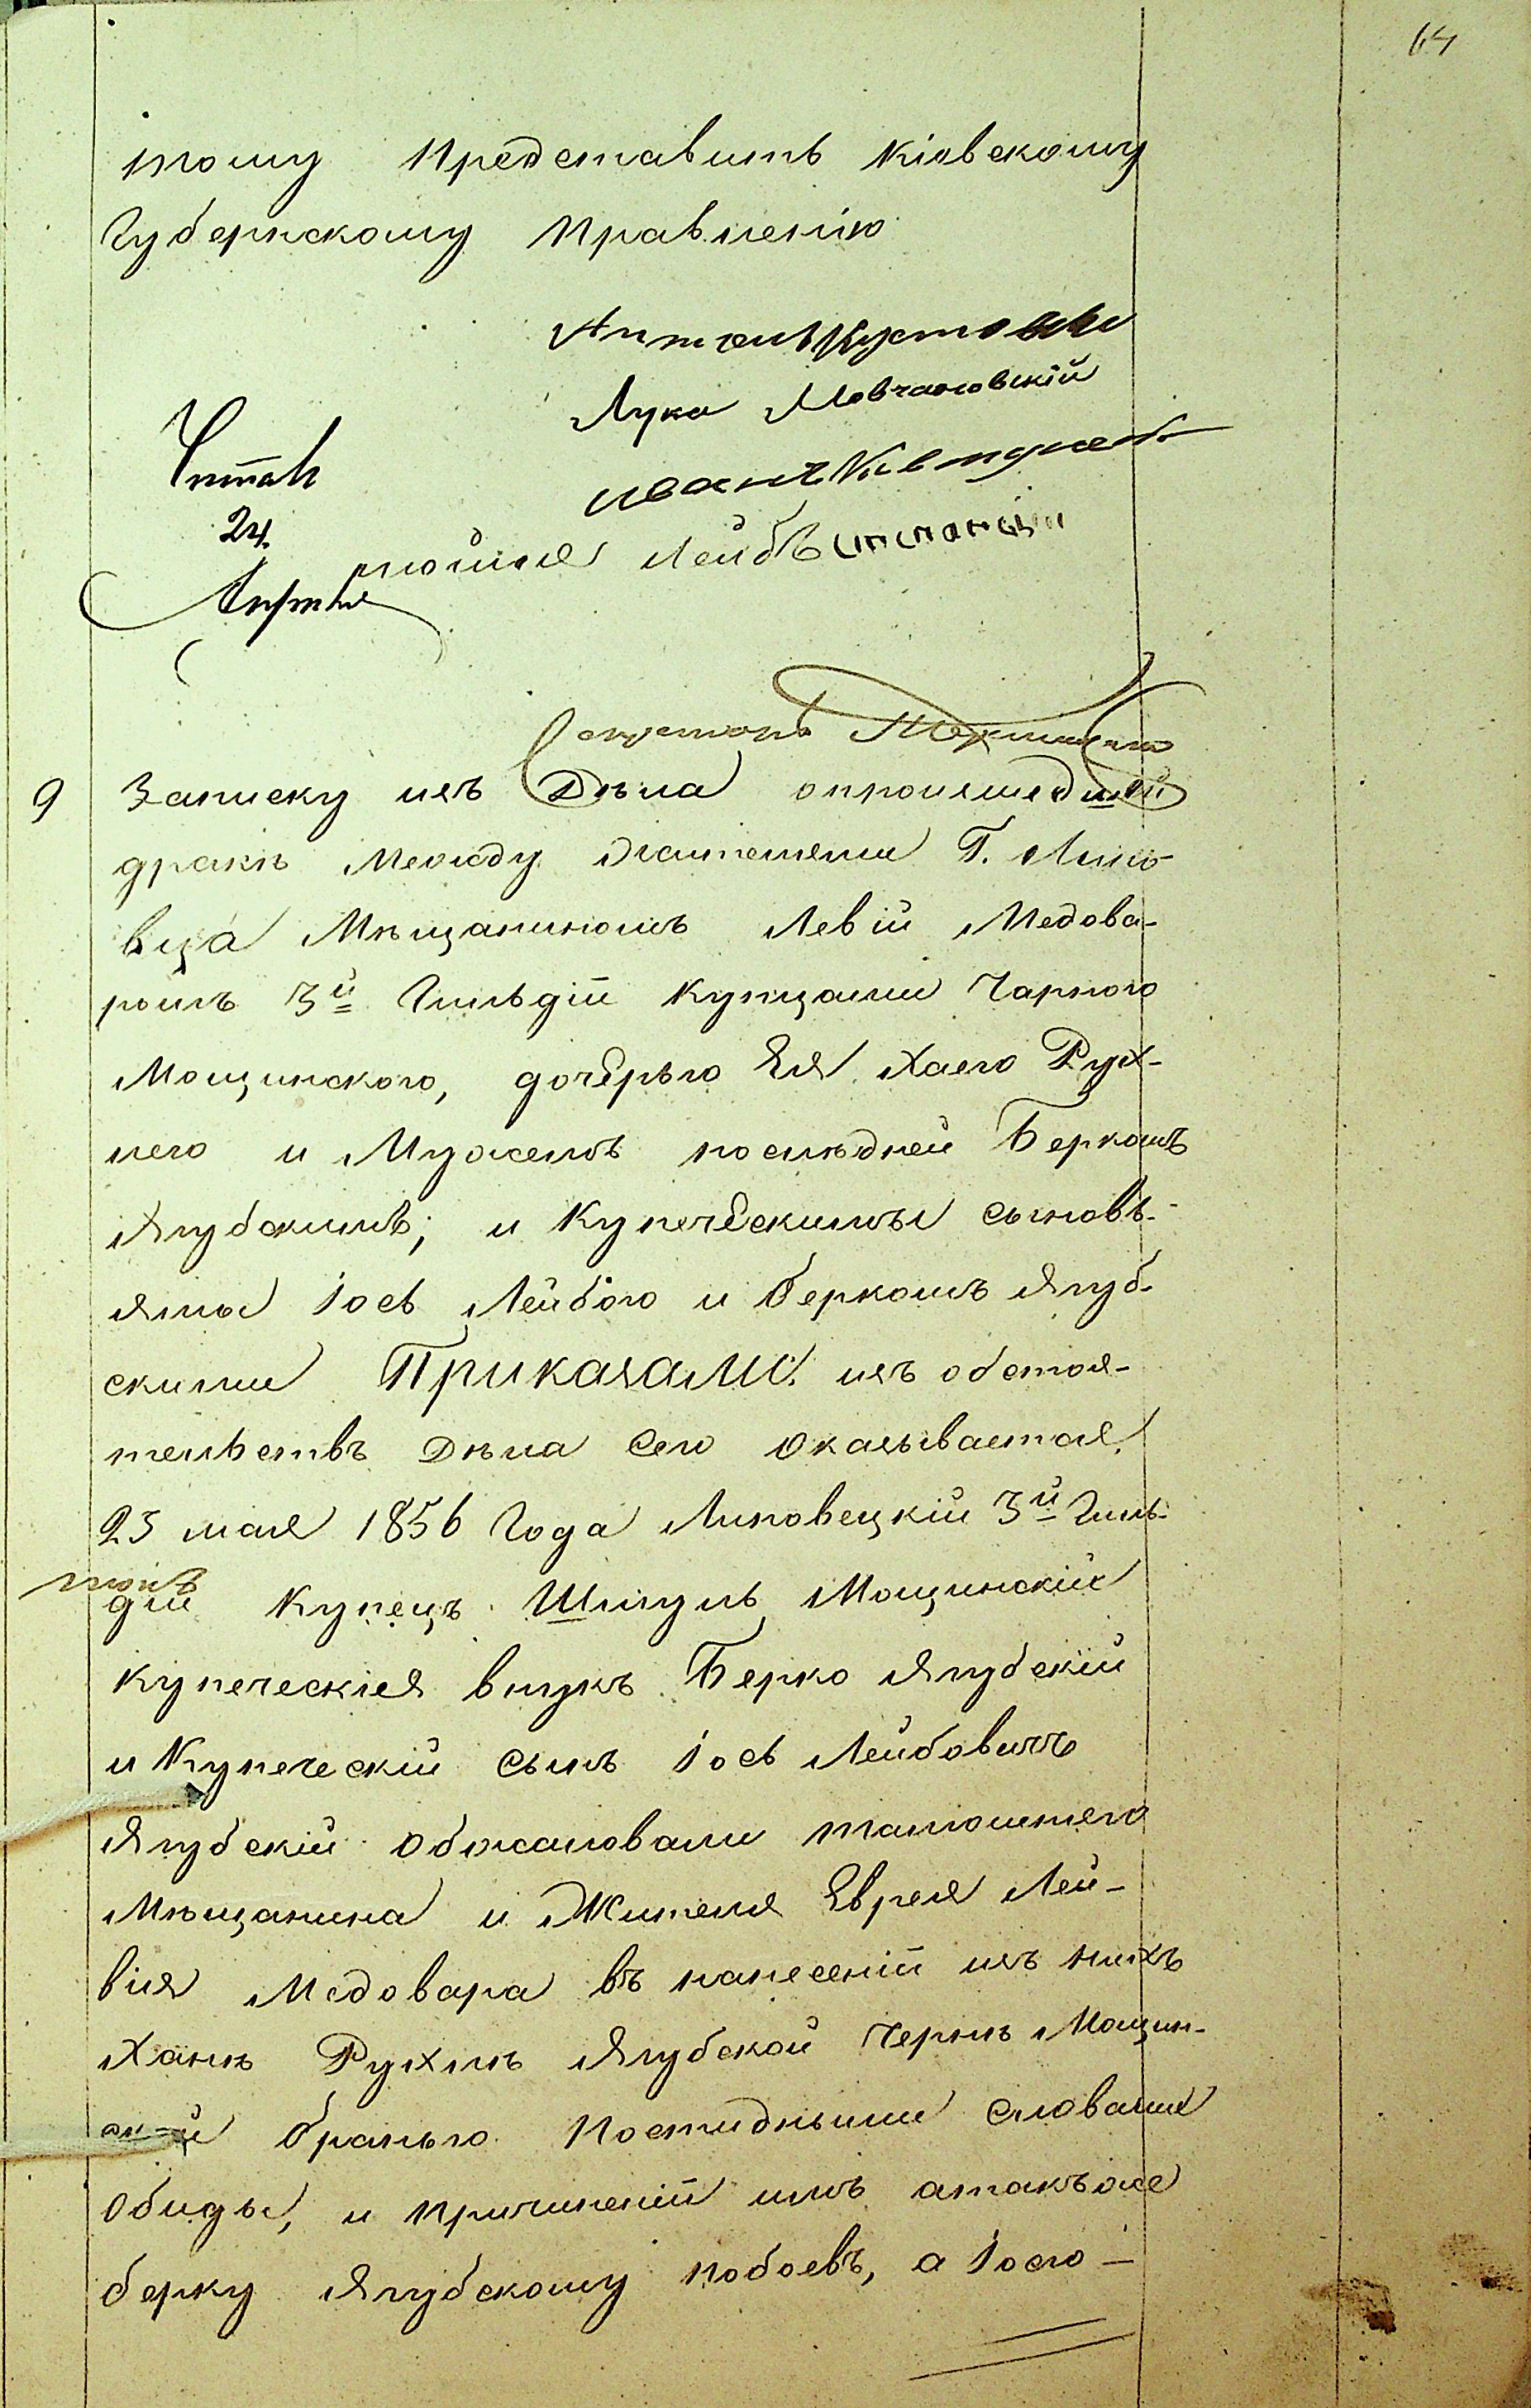 64
тому представить Кіевскому
Губернскому Правленію
Антонъ
Лука Мовчановскій
Иванъ
Читалъ
24
Лейбъ
Апрѣля
Секретарь
9 Записку изъ Дѣла опроизшедшей
дракѣ между жителями Г. Липо-
вца Мѣщаниномъ Левій Медова-
ромъ 3й Гильдіи купцами Чарною
Мощинского, дочерью Ея Хаею Рух-
лею и Мужемъ послѣдней Беркомъ
Ягубскимъ; и Купеческимы сыновь-
ямы Іось Лейбою и Беркомъ Ягуб-
скими Приказали: изъ обстоя-
тельствъ Дѣла Сего Оказывается,
23 мая 1856 Года Липовецкій 3й Гиль-
діи Купецъ Шмуль Мощинскій
Купеческія внукъ Берко Ягубскій
и Купеческій сынъ Іось Лейбовичъ
Ягубскій обжаловали тамошнего
Мѣщанина и Жителя Еврея Лей-
вія Медовара въ нанесеніи изъ нихъ
Ханѣ Рухлѣ Ягубской Чернѣ Мощин-
ской бранью постидными словами
Обиды, и причиненіи имъ атакъже
берку Ягубскому побоевъ, а Іосю —